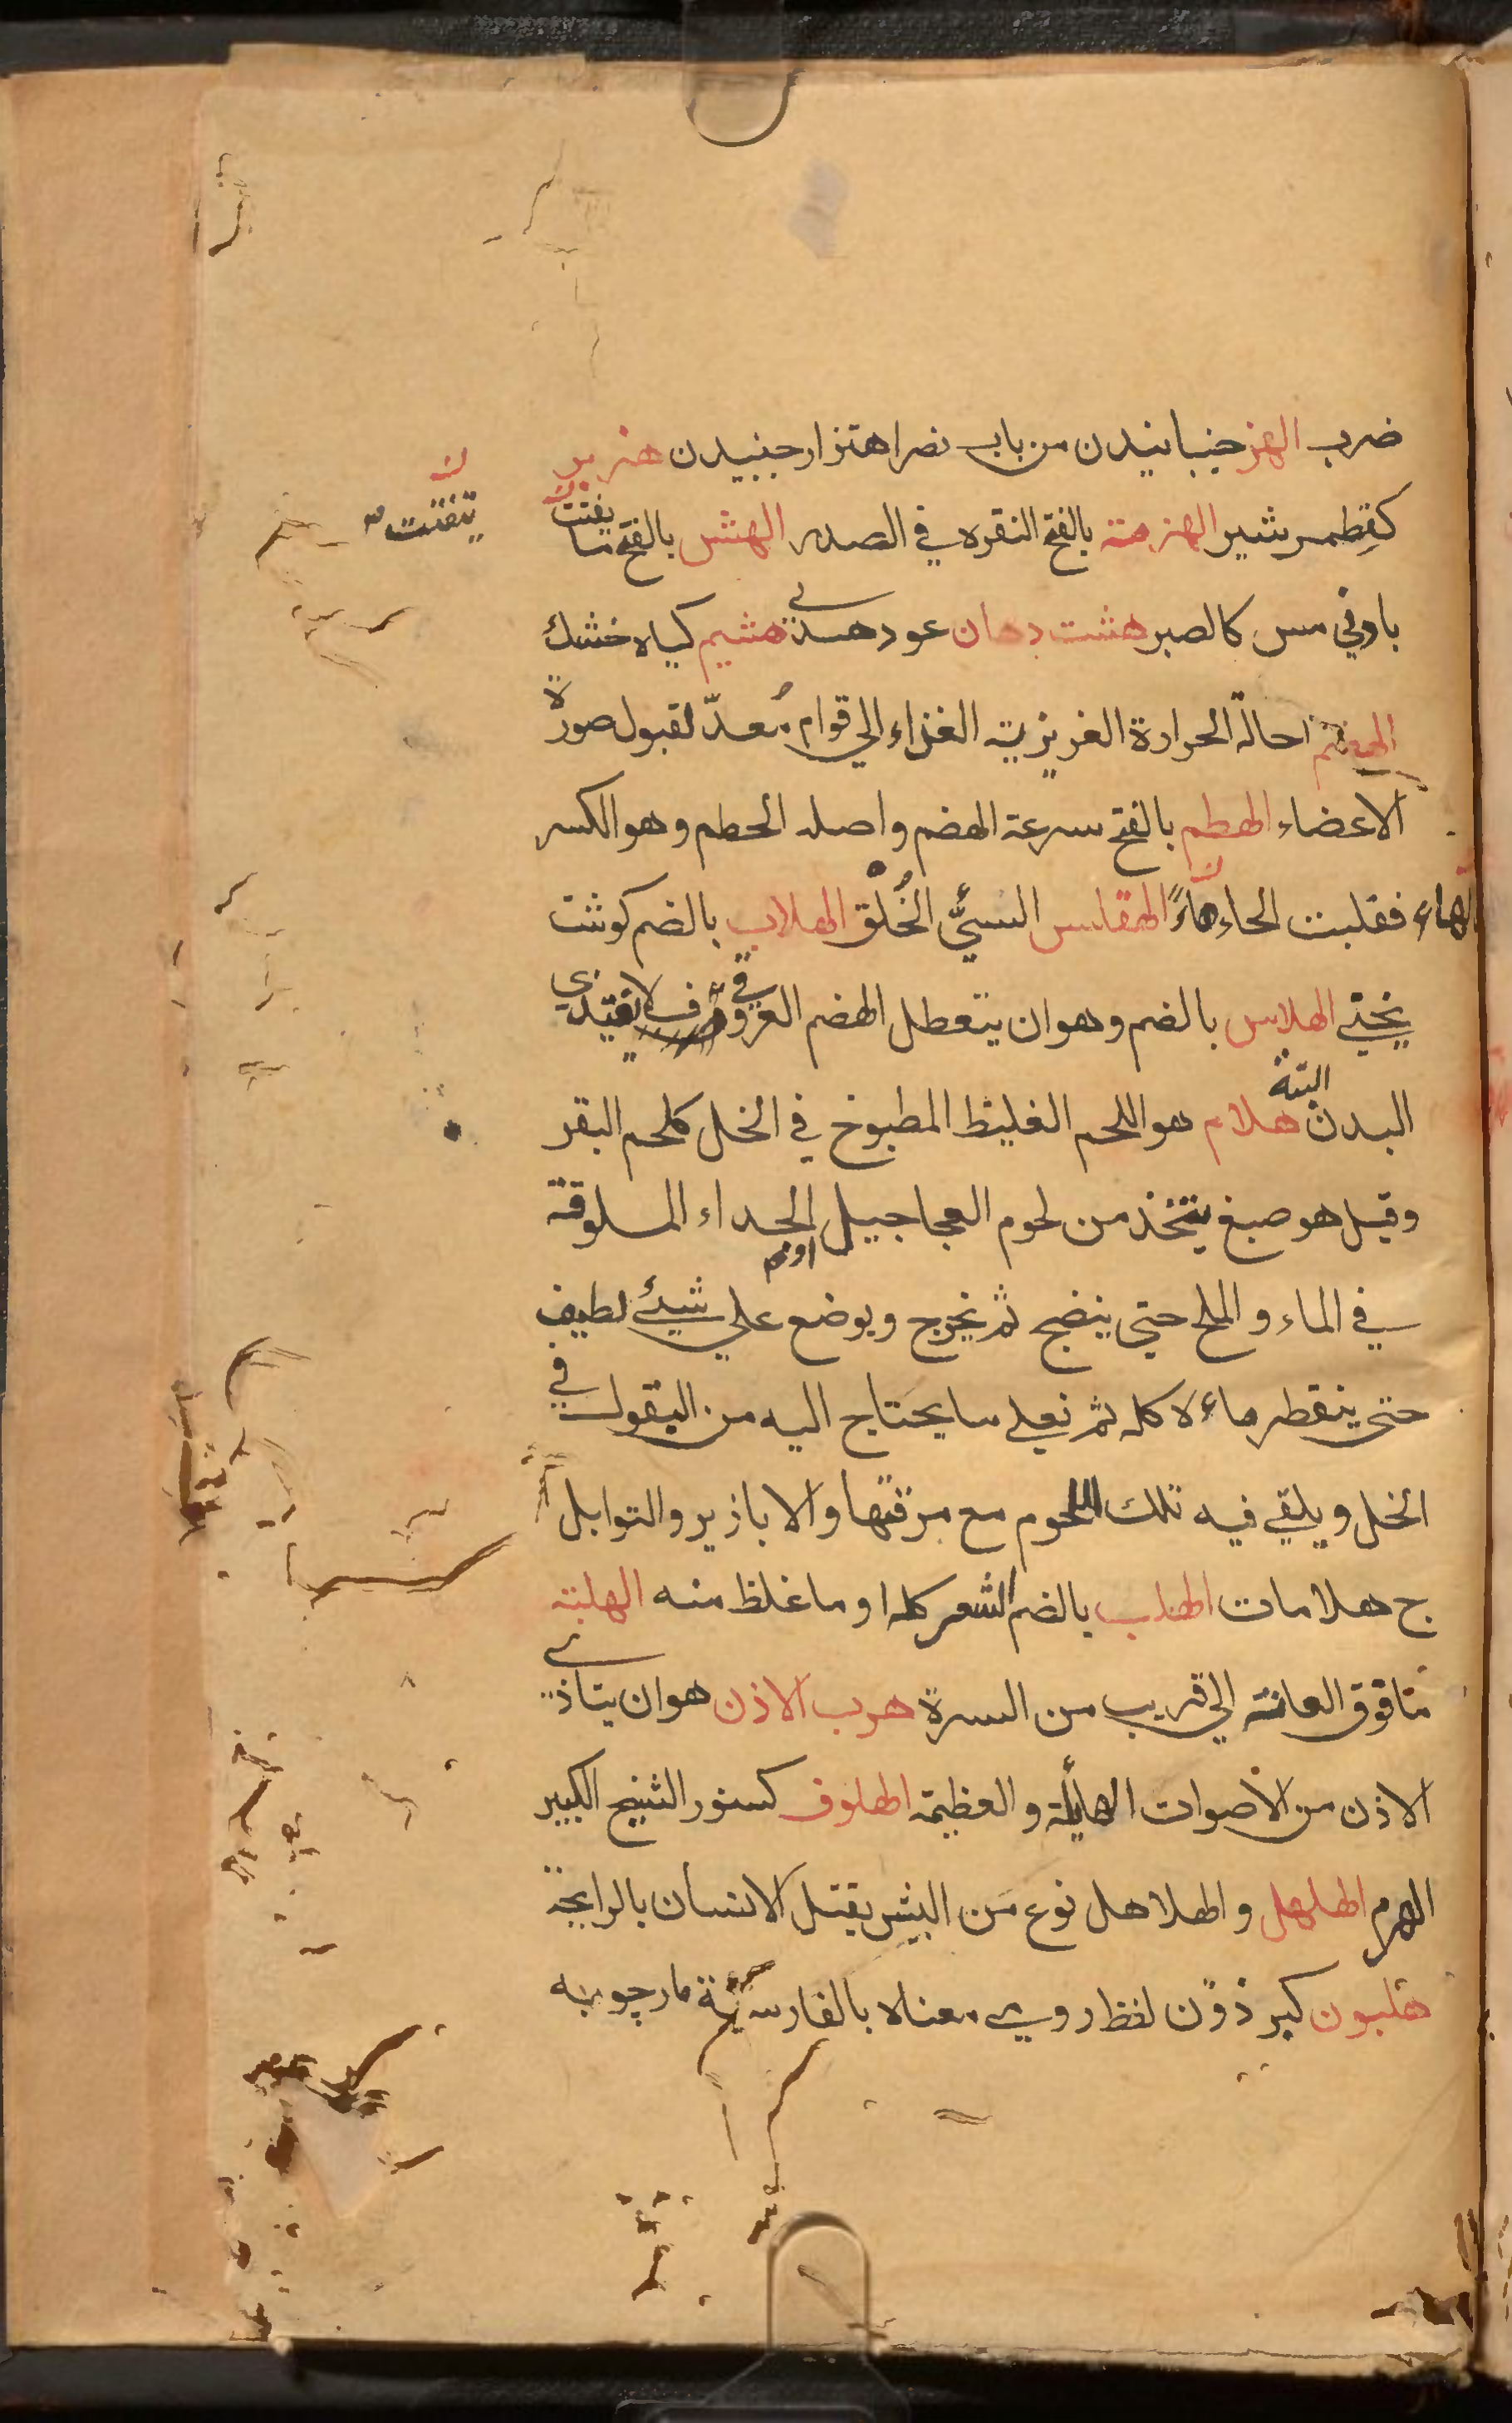 ضرب الهز جنبانیدن من باب نصر اهتزاز جنبیدن هزبر
كقِطمر شیر الهزمة بالفتح النقره في الصدر الهش بالفتح ما یفتت
ن یتفتت
بادني مس كالصبر هشت دهان عود هندي هشیم کیاه خشك
الهضم احالة الحرارة الغریزیة الغذاء الي قوام مُعدّ لقبول صورة
الاعضاء الهطم بالفتح سرعة الهضم واصله الحطم وهو الكسر
فقلبت الحاء هاءً الهقلس السيّئ الخُلق الهلاب بالضم كوشت
یختي الهلاس بالضم وهو ان یتعطل الهضم العروقي فلا تغتذي
البدن البتة هلام هو اللحم الغلیظ المطبوخ في الخل كلحم البقر
وقیل هو صبغ یتخذ من لحوم العجاجیل او لحم الجداء المسلوقة
في الماء و الملح حتي ینضج ثم یخرج ویوضع علي شيئ لطیف
حتی ینقطر ماءه كله ثم تغلي ما یحتاج الیه من البقول في
الخل ویلقي فیه تلك اللحوم مع مرقتها والابازیر والتوابل
ج هلامات الهلب بالضم الشعر كله او ما غلظ منه الهلبة
ما فوق العانة الي قریب من السرة هرب الاذن هو ان یتاذي
الاذن من الأصوات الهایٔلة و العظیمة الهلوف كسنور الشیخ الكبیر
الهرم الهلهل و الهلاهل نوع من البیش یقتل الانسان بالرایحة
هلیون كبرذون لفظ رومي معناه بالفارسیّة مارچوبه